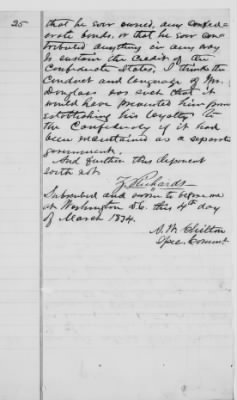 25
that he ever owned, any Confed-
erate bonds, or that he ever con-
tributed anything in any way
to sustain the Credit of the
Confederate States, I think the
Conduct and language of Mr.
Douglass was such that it
would have prevented him from
establishing his loyalty to
the Confederacy if it had
been maintained as a separate
government.
And further this deponent
saith not.
Z. Richards
Subscribed and sworn to before me
at Washington D.C. this 4th day
of March 1874.
N. W. Chilton
Spec. Commr.